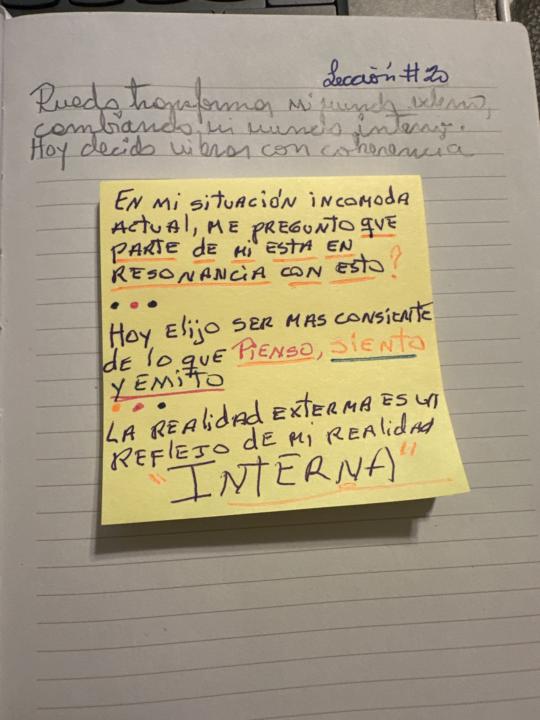 Lección #20
Puedo transformar mi mundo externo,
cambiando mi mundo interno.
Hoy decido vibrar con coherencia
EN MI SITUACIÓN INCOMODA
ACTUAL, ME PREGUNTO QUE
PARTE DE MI ESTA EN
RESONANCIA CON ESTO?
Hoy Elijo SER MAS CONSIENTE
de lo QUE PIENSO, SIENTO
Y EMITO
LA REALIDAD EXTERMA ES UN
REFLEJO DE MI REALIDAD
"INTERNA"